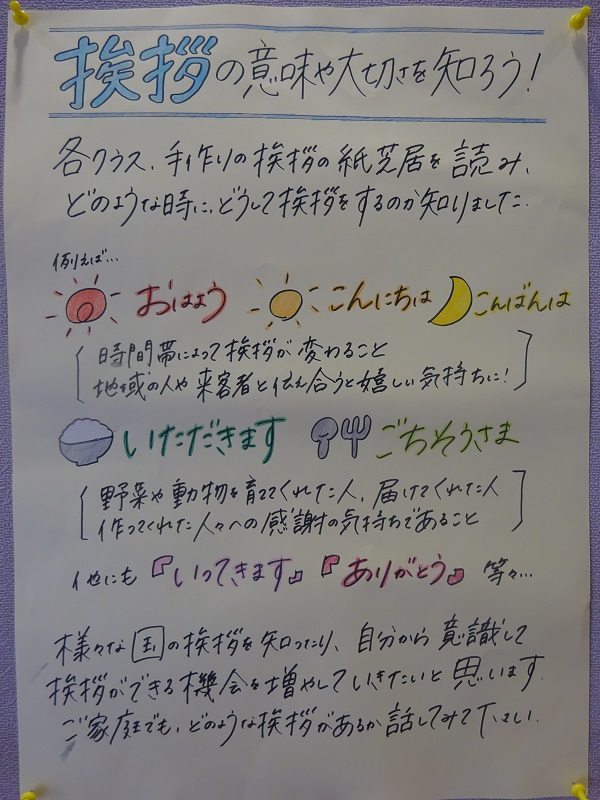 挨拶の意味や大切さを知ろう!
各クラス、手作りの挨拶の紙芝居を読み、
どのような時に、どうして挨拶をするのか知りました。
例えば…
おはよう こんにちは こんばんは
[時間帯によって挨拶が変わること
地域の人や来客者と伝え合うと嬉しい気持ちに!]
いただきます ごちそうさま
[野菜や動物を育ててくれた人、届けてくれた人
作ってくれた人々への感謝の気持ちであること]
他にも『いってきます』『ありがとう』等々…
様々な国の挨拶を知ったり、自分から意識して
挨拶ができる機会を増やしていきたいと思います。
ご家庭でも、どのような挨拶があるか話してみて下さい。